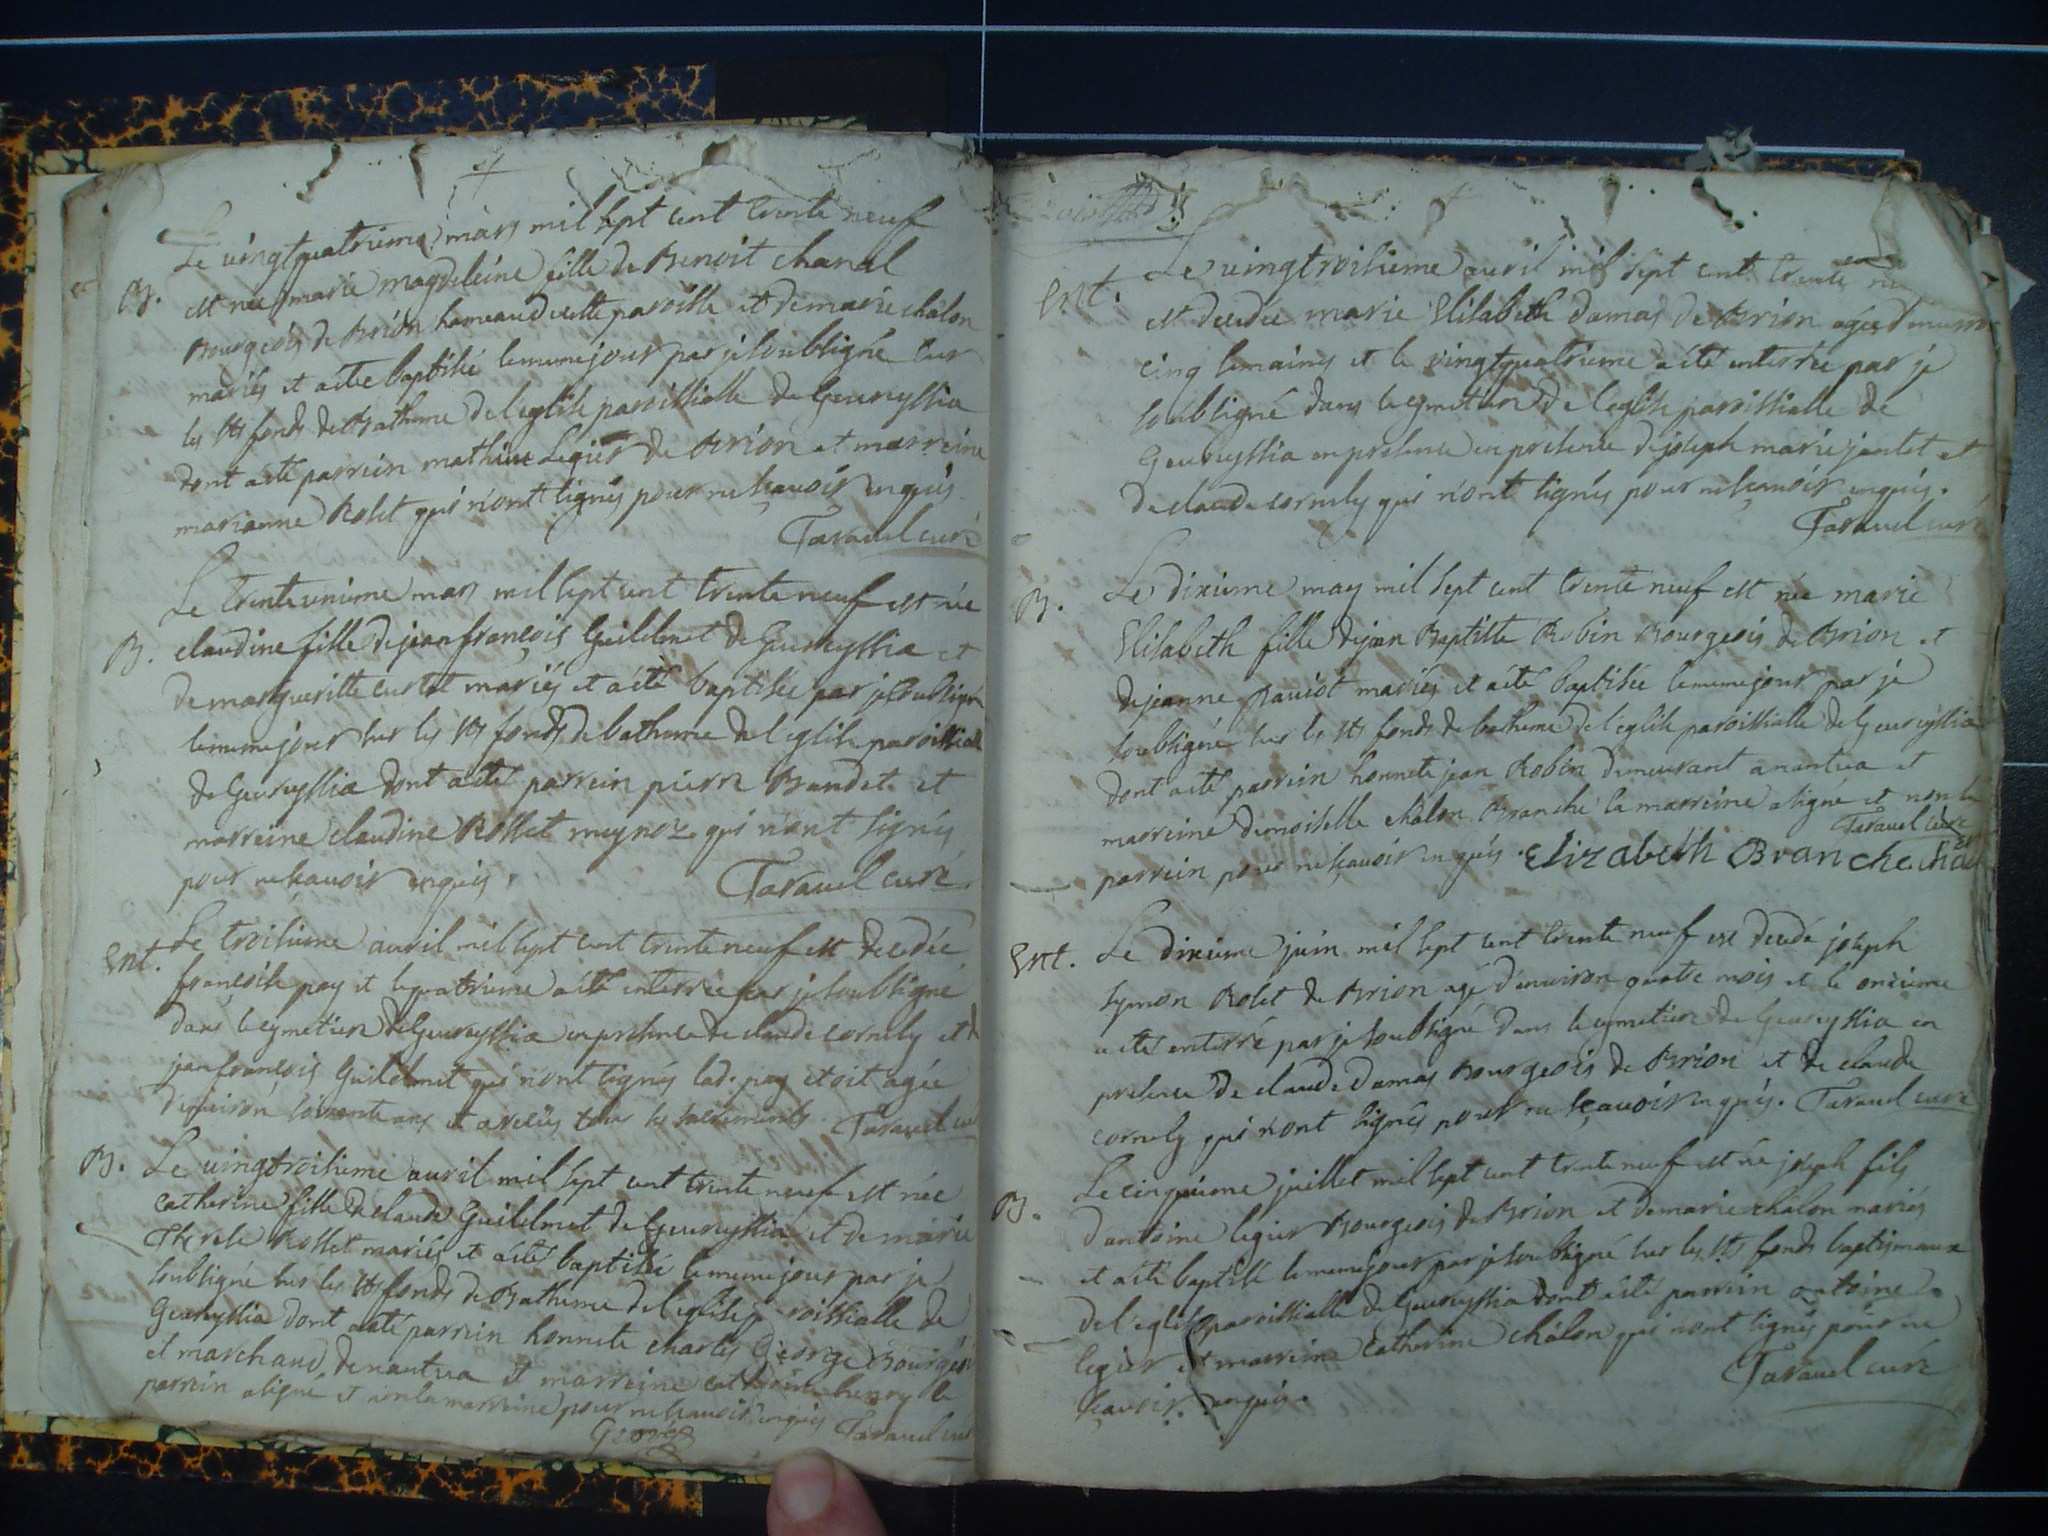 Le vingtquatrieme mars mil sept cent trente neuf
B. est née marie magdeleine fille de Benoit chanal
Bourgeois de Brion hameau de cette paroisse et de marie chalon
mariés et a été baptisée le meme jour par je soubsigné sur
les sts fonds de Batheme de l'eglise paroissialle de Geovreyssia
dont a été parrein mathieu Legier de Brion et marreine
marianne Rolet qui n'ont signés pour ne sçavoir enquis.
Taravel curé
Le trente unieme mars mil sept cent trente neuf est née
B. claudine fille de jean françois Guilelmet de Geovreyssia et
de margueritte curtet mariés et a été baptisée par je soubsigné
le meme jour sur les sts fonds de batheme de l'eglise paroissiale
de Geovreyssia dont a été parrein pierre Baudet et
marreine claudine Rosset meynoz qui n'ont signés
pour ne sçavoir enquis.
Taravel curé
Ent. Le troisieme avril mil sept cent trente neuf est decedée
françoise pay et le quatrieme a été enterrée par je soubsigné
dans le cymetiere de Geovreyssia en presence de claude cornely et de
jean françois Guilelmet qui n'ont signés lad. pay etoit agée
d'environ soixante ans et a reçüs tous les sacrements Taravel curé
B. Le vingtroisieme avril mil sept cent trente neuf est née
catherine fille de claude Guilelmet de Geovreyssia et de marie
Therese Rosset mariés et a été baptisée le meme jour par je
soubsigné sur les sts fonds de Batheme de l'eglise paroissialle de
Geovreyssia dont a été parrein honnete charles George Bourgeois
et marchand de nantua et marreine catherine henry le
parrein a signé et non la marreine pour ne sçavoir enquis Taravel curé
George
Ent. Le vingtroisieme avril mil sept cent trente
est decedée marie Elisabeth damas de Brion agée d'environ
cinq semaines et le vingtquatrieme a été enterrée par je
soubsigné dans le cymetiere de l'eglise paroissialle de
Geovreyssia en presence en presence de joseph marie jantet et
de claude cornely qui n'ont signés pour ne sçavoir enquis.
Taravel curé
B. Le dixieme may mil sept cent trente neuf est née marie
Elisabeth fille de jean Baptiste Robin Bourgeois de Brion et
de jeanne Pauiot mariés et a été baptisée le meme jour par je
soubsigné sur les sts fonds de batheme de l'eglise paroissialle de Geovreyssia
dont a été parrein honnete jean Robin demeurant a nantua et
marreine demoiselle chalon Branche la marreine a signé et non le
Taravel curé
parrein pour ne sçavoir enquis. Elizabeth Branche
Ent. Le dixieme juin mil sept cent trente neuf est decedé joseph
symon Rolet de Brion agé d'environ quatre mois et le onzieme
a été enterré par je soubsigné dans le cymetiere de Geovreyssia en
presence de claude damas Bourgeois de Brion et de claude
cornely qui n'ont signés pour ne sçavoir enquis. Taravel curé
B. Le cinquieme juillet mil sept cent trente neuf est né joseph fils
d'antoine legier Bourgeois de Brion et de marie chalon mariés
et a été baptisé le meme jour par je soubsigné sur les sts fonds baptismaux
de l'eglise paroissialle de Geovreyssia dont a été parrein antoine
legier et marreine catherine chalon qui n'ont signés pour ne
sçavoir enquis.
Taravel curé